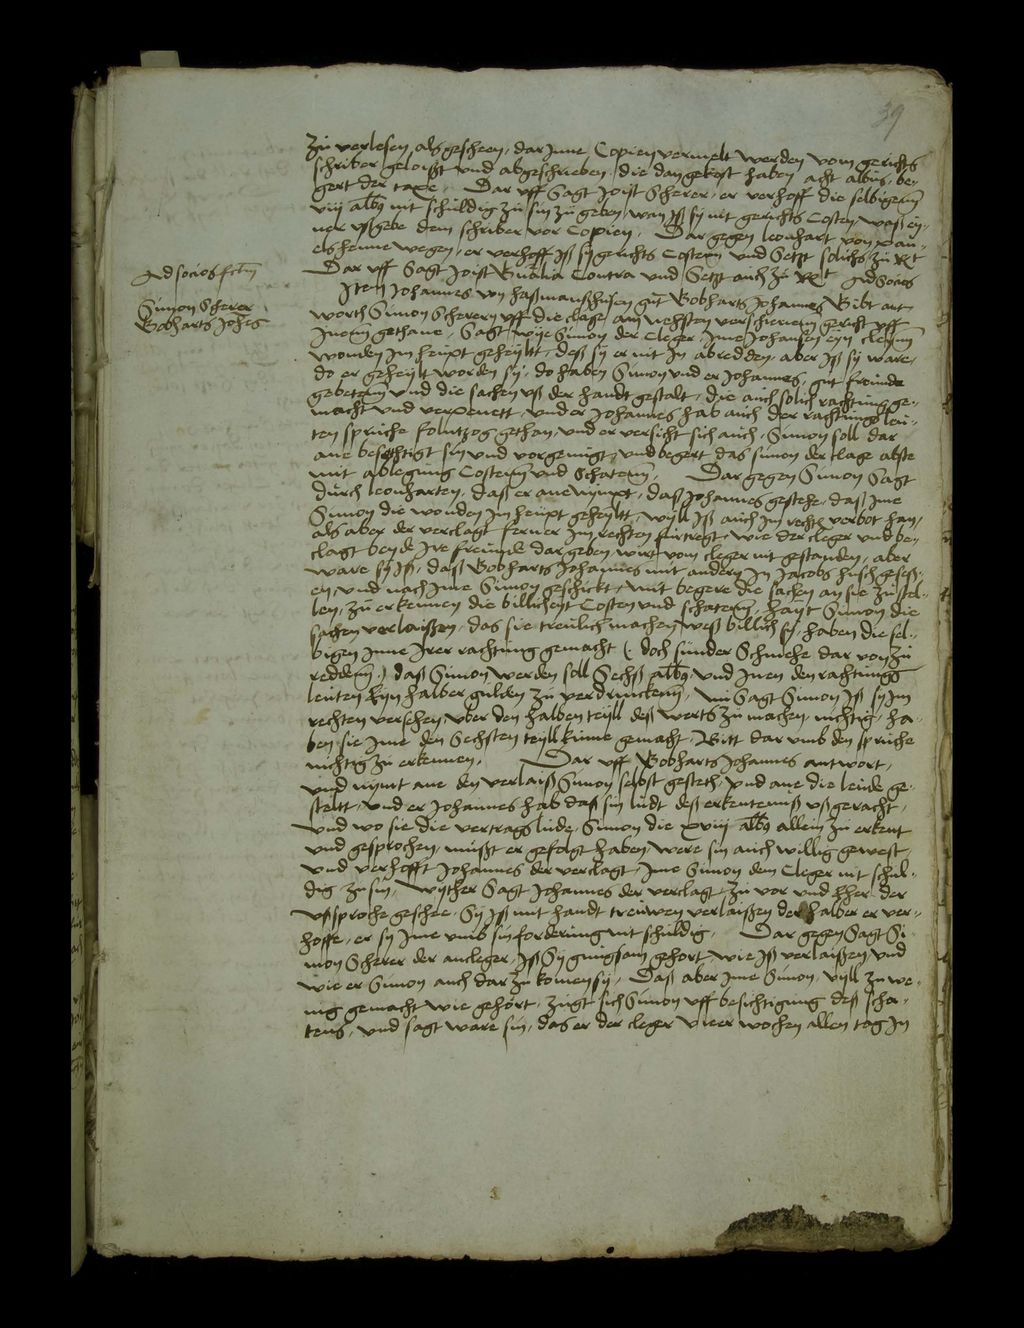 39
zu verlesen, als gescheen, dar Inne Copien vermelt werden vom gerichts
schriber geloißt und abgeschrieben, die dan gekost haben acht albus, be-
gert der taxe, Dar uff Sagt Joist Scherer, er verhoff die selbigenn
viij albus nit schuldig zu sin zu geben, wan Iß sy nit gerichts Costen waß ey-
ner ußgebe dem schriber vor Copien, Dar gegen leonhart von
henne wegen, er verhoff Iß sy gerichts Costenn und Setzt solichs zu Recht
Dar uff Sagt Joist Contra und Setzt auch zu Recht Ad Socios
Ad socios
Simon Scherer
Bobharts Johes
Item Johannes von gut Bobharts Johannes Gibt ant
worth Simon Scherern uff die clage am nehsten verschienenn gericht uff
Inenn gethane, Sagt wye Simon der Cleger, Ime Johansen eyn cleynn
wonden Im heupt geheyltt, deß sy er nit In abredden, aber Iß sy ware,
do er geheylt worden sy, do haben Simon und er Johannes, gut freunde
gebetenn und die sachen uß der handt gestalt, die auch solich rachtung ge-
macht und verpenett, und er Johannes hab auch der rachtungs leu-
ten spruche folntzog gethan, und er versicht sich auch, Simon soll dar
ane besechtigt sin und vorgenugt, und begert das simon der clage abste
mit ablegung Costenn und Schatenn, Dar gegen Simon Sagt
durch leonharten, daß er anenympt, daß Johannes gestehe, daß Ime
Simon die wonden Im heupt geheyltt, wyll Iß auch Im rechte verbot han,
als aber der verclagt ferner Im rechten furtregt, wie der cleger und be-
clagt beyde Ire freunde dar geben, wirt vom cleger nit gestanden, aber
ware sy Iß, daß Bobharts Johannes mit andern In Jacobs husch geseß-
en, und nach Ime Simon geschickt, mit begere die sachen an sie zu stel-
len, zu erkennen die billicheyt Costen und schatenn, hayt Simon die
sachen verlaißen, das sie treulich machen weß billich sy, haben die sel-
bigen Inne Irer rachtung gemacht (: doch sunder Schmehe dar von zu
reddenn:) daß Simon werden soll Sechß albus, und Inen den rachtungs
leuten Eyn halber gulden zu verdrinckenn, nu Sagt Simon Iß sy Im
rechten versehen, uber den halben teyll deß werts zu machen, nichtig, ha-
ben sie Ime den Sechsten teyll kume gemacht, Bitt dar umb den spruche
nichtig zu erkennen, Dar uff Bobharts Johannes antwort,
und nympt ane den verlaiß Simon selbst gesteth, und ane die leude ge-
stellt, und er Johannes hab daß sin ludt deß erkentenuß ußgeracht,
und wo sie die vertrags lude, Simon die xviij albus allein zu erkent
und gesprochen, mußt er gefolgt haben, were sin auch willig gewest,
und verhofft Johannes der verclagt, Ime Simon dem Cleger nit schul-
dig zu sin, wyther Sagt Johannes der verclagt, zu vor und eher der
ußsproche geschee, Sy Iß mit handt treuwen verlaißen der halber er ver-
hoffe, er sy Ime umb sin forderung nit schuldig, Dar gegen Sagt Si-
mon Scherer der ancleger, Iß Sy gnugsam gehort, wie Iß verlaißen, und
wie er Simon auch dar zu komen sy, Daß aber Ime Simon, vyll zu we-
nig gemacht wie gehort, zugt sich Simon uff besichtigung deß scha-
tens, und sagt ware sin, das er der cleger vieer wochen allen tag In